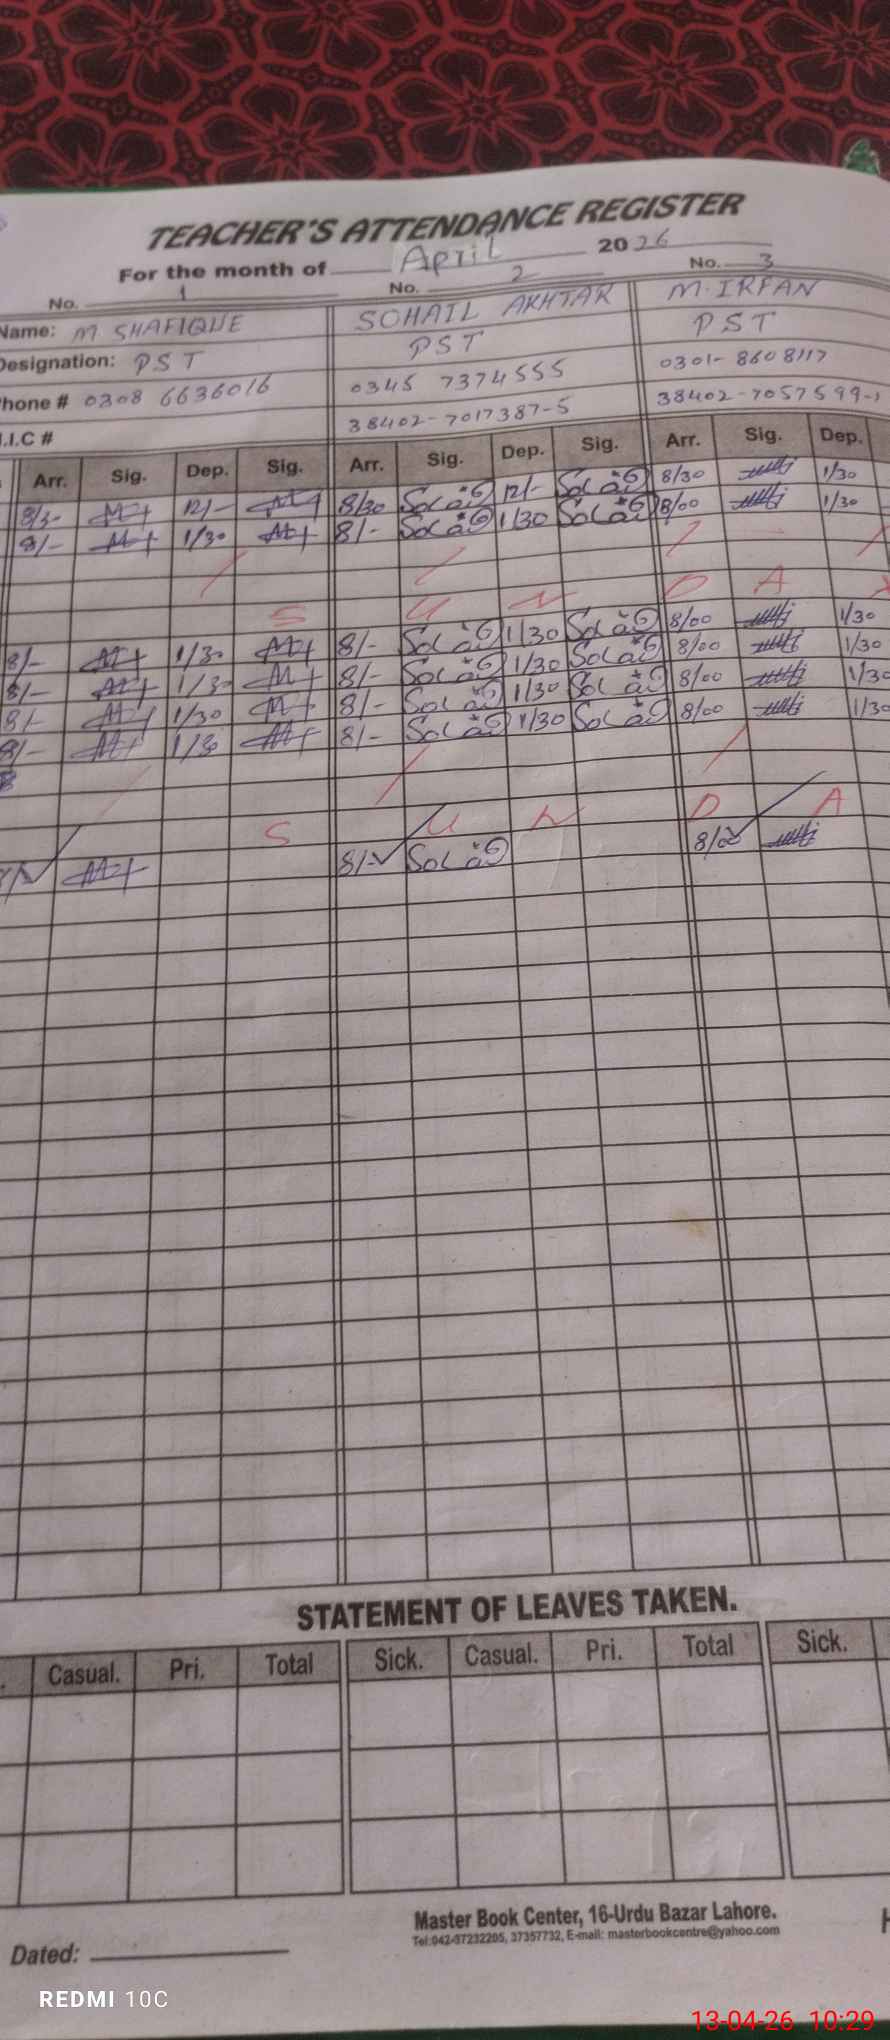 TEACHER'S ATTENDANCE REGISTER
For the month of April 2026
No. 1 No. 2 No. 3
Name: M SHAFIQUE SOHAIL AKHTAR M.IRFAN
Designation: PST PST PST
Phone # 0308 6636016 0345 7374555 0301-8608117
.I.C # 38402-7017387-5 38402-7057599-
Arr. Sig. Dep. Sig. Arr. Sig. Dep. Sig. Arr. Sig. Dep.
8/30 12/- 8/30 12/- 8/30 1/30
8/- 1/30 8/- 1/30 8/00 1/30
S U N D A
8/- 1/30 8/- 1/30 8/00 1/30
8/- 1/30 8/- 1/30 8/00 1/30
8/- 1/30 8/- 1/30 8/00 1/30
8/- 1/30 8/- 1/30 8/00 1/30
S U N D A
8/- 8/00
STATEMENT OF LEAVES TAKEN.
Casual. Pri. Total Sick. Casual. Pri. Total Sick.
Master Book Center, 16-Urdu Bazar Lahore.
Tel:042-37232205, 37357732, E-mail: masterbookcentre@yahoo.com
Dated:
REDMI 10C
13-04-26 10:29